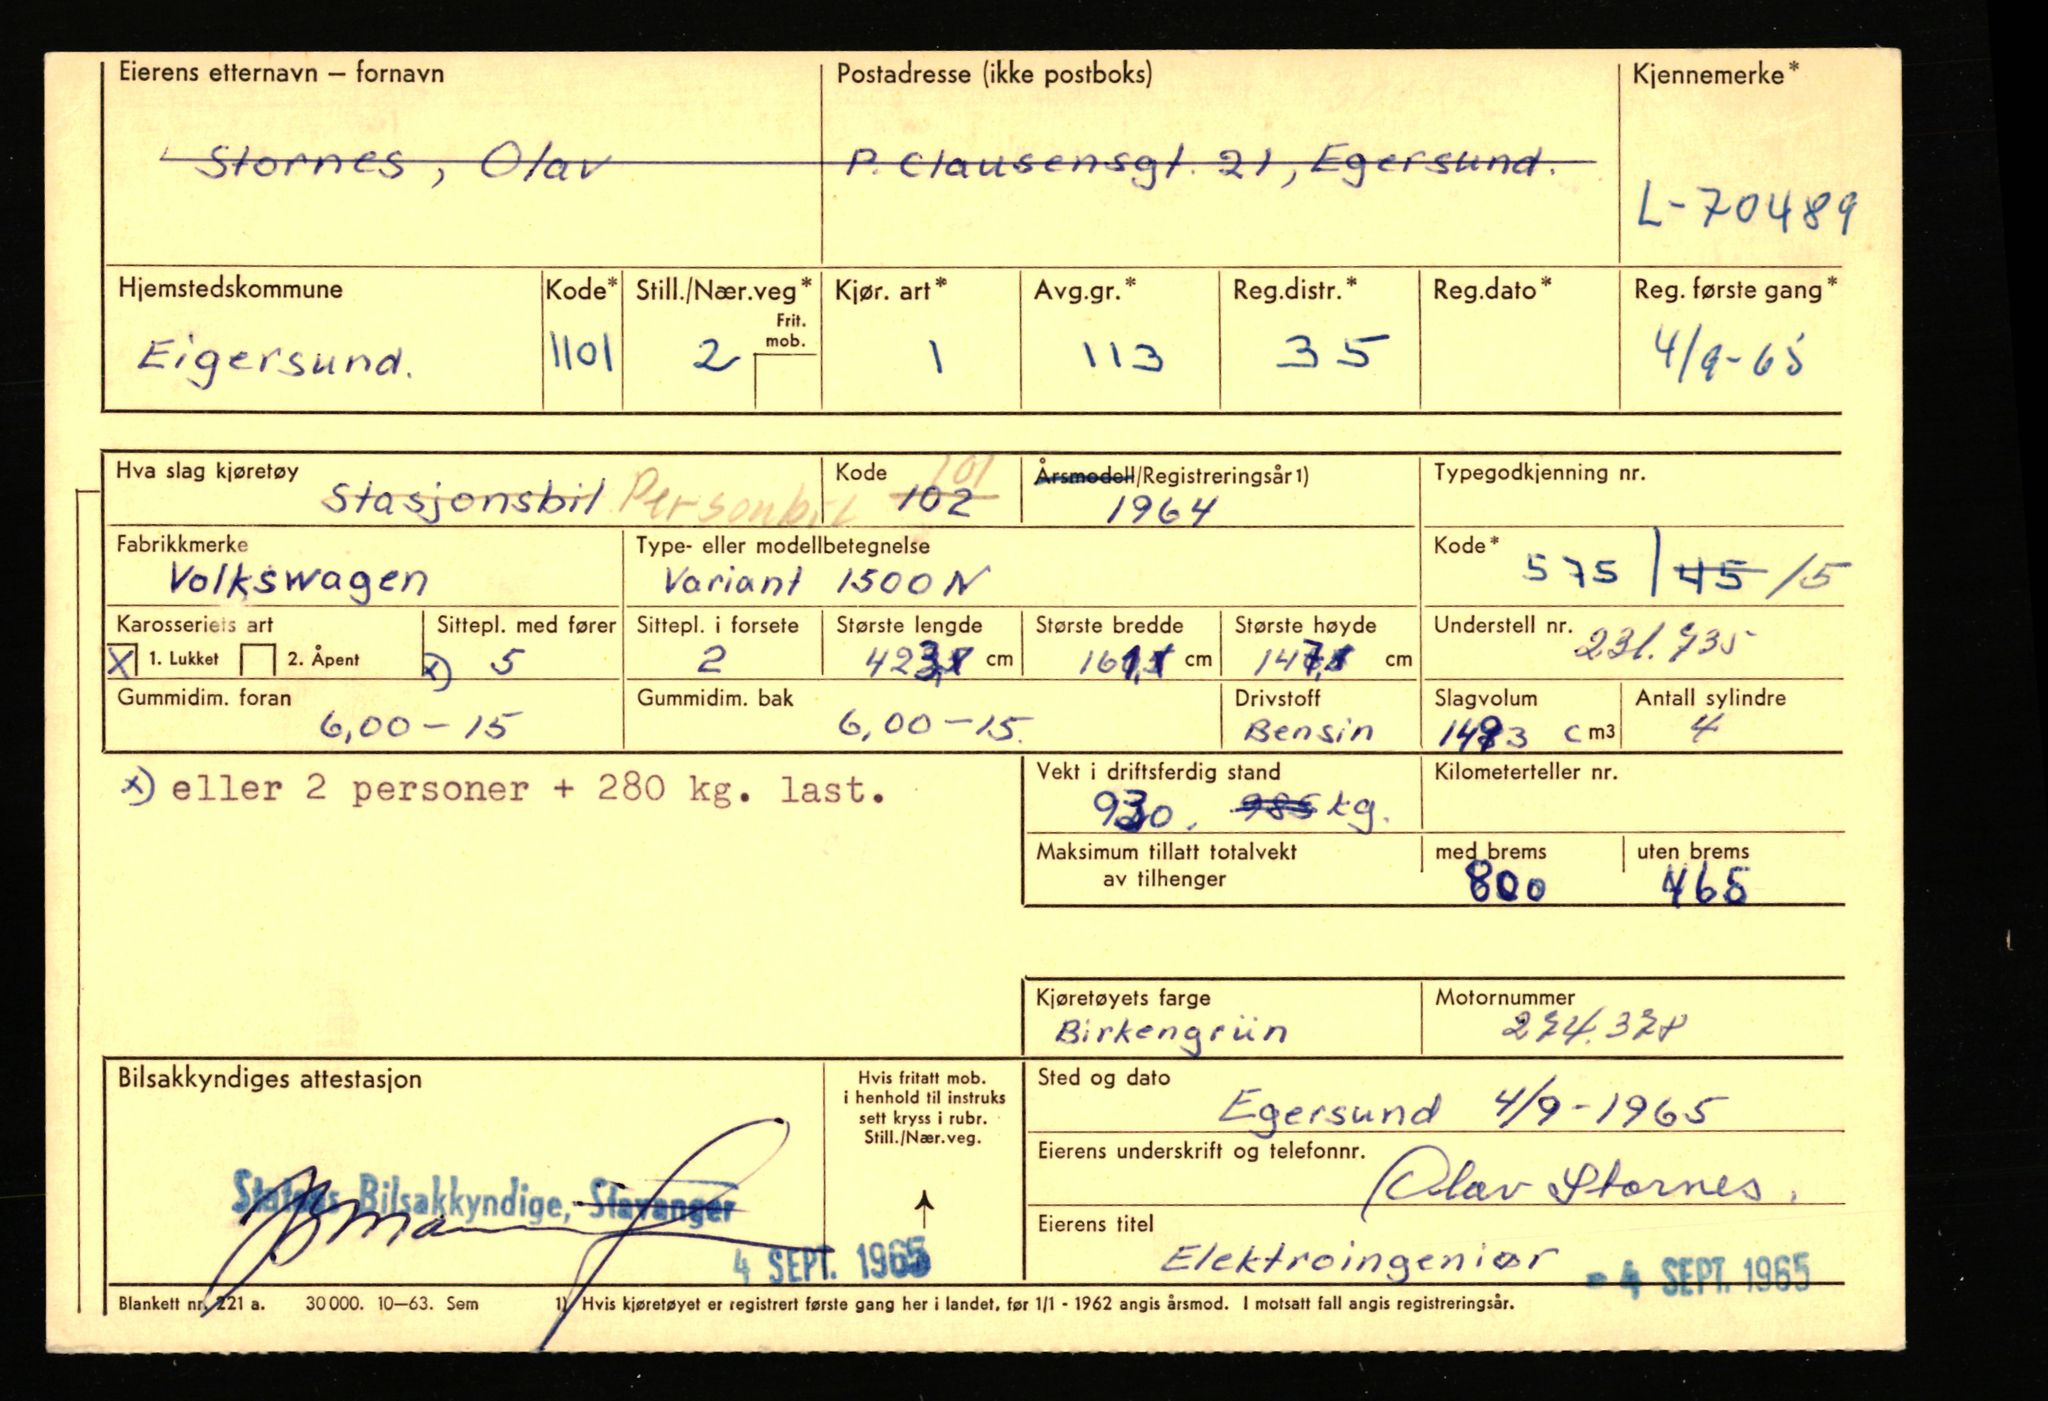 Eierens etternavn – fornavn Postadresse (ikke postboks) Kjennemerke*
Stornes, Olav P. Clausensgt. 21, Egersund.
L-70489
Hjemstedskommune Kode* Still./Nær.veg* Kjør. art* Avg.gr.* Reg.distr.* Reg.dato* Reg. første gang*
Frit.
mob.
Eigersund. 1101 2 1 113 35 4/9-65
Hva slag kjøretøy Kode 101 Årsmodell/Registreringsår1) Typegodkjenning nr.
Stasjonsbil Personbil 102 1964
Fabrikkmerke Type- eller modellbetegnelse Kode*
Volkswagen Variant 1500 N 575 / 45 /5
Karosseriets art Sittepl. med fører Sittepl. i forsete Største lengde Største bredde Største høyde Understell nr. 231.735
X 1. Lukket 2. Åpent x) 5 2 423, cm 161, cm 147, cm
Gummidim. foran Gummidim. bak Drivstoff Slagvolum Antall sylindre
6,00-15 6,00-15. Bensin 1493 cm3 4
x) eller 2 personer + 280 kg. last.
Vekt i driftsferdig stand Kilometerteller nr.
930. 985 kg.
Maksimum tillatt totalvekt med brems uten brems
av tilhenger 800 465
Kjøretøyets farge Motornummer
Birkengrün 274.378
Bilsakkyndiges attestasjon
Hvis fritatt mob.
i henhold til instruks
sett kryss i rubr.
Still./Nær.veg.
Sted og dato
Egersund 4/9-1965
Eierens underskrift og telefonnr.
Olav Stornes.
Statens Bilsakkyndige, Stavanger
4 SEPT. 1965
Eierens titel
Elektroingeniør
- 4 SEPT. 1965
Blankett nr. 221 a. 30000. 10–63. Sem 1) Hvis kjøretøyet er registrert første gang her i landet, før 1/1 - 1962 angis årsmod. I motsatt fall angis registreringsår.